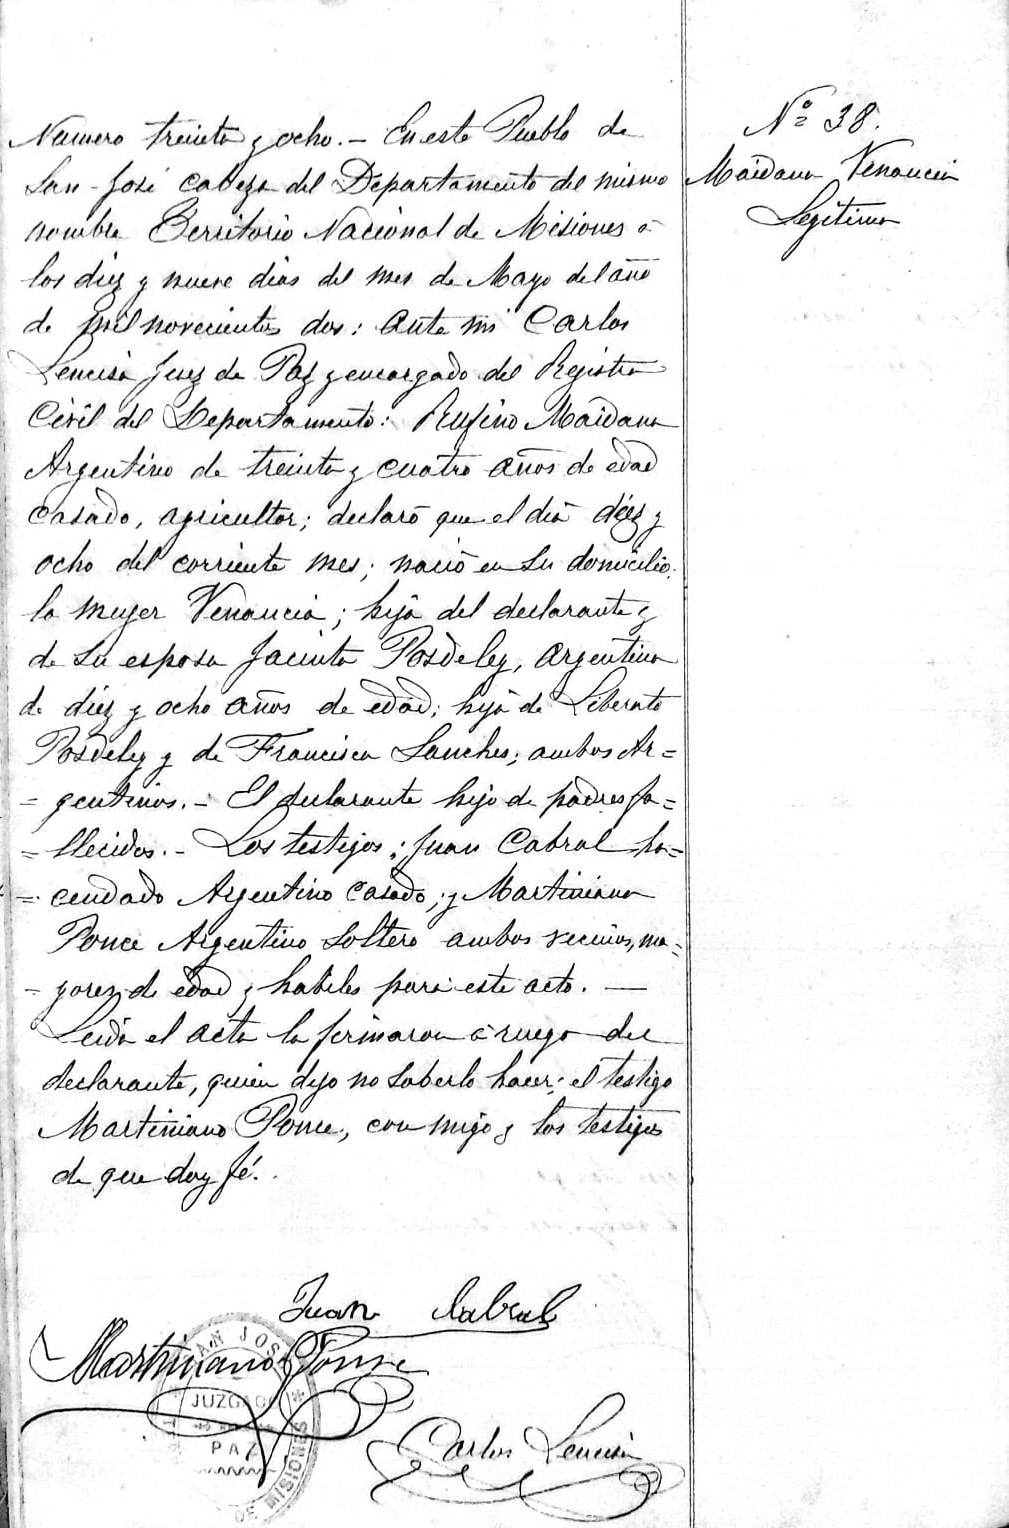 Numero treinta y ocho.- En este Pueblo de
San-José cabeza del Departamento del mismo
nombre Territorio Nacional de Misiones á
los diez y nueve dias del mes de Mayo del año
de mil novecientos dos: ante mi Carlos
Lencisa Juez de Paz y encargado del Registro
Civil del Departamento: Rufino Maidana
Argentino de treinta y cuatro años de edad
casado, agricultor; declaró que el dia diez y
ocho del corriente mes; nació en su domicilio;
la mujer Venancia; hija del declarante y
de su esposa Jacinta Posdeley, Argentina
de diez y ocho años de edad; hija de Liberato
Posdeley y de Francisca Sanches; ambos Ar=
= gentinos.- El declarante hijo de padres fa=
= llecidos.- Los testigos; Juan Cabral ha=
= cendado Argentino casado; y Martiniano
Ponce Argentino Soltero ambos vecinos, ma=
- yores de edad y habiles para este acto. —
Leida el acta la firmaron á ruego del
declarante, quien dijo no saberlo hacer; el testigo
Martiniano Ponce, con migo y los testigos
de que doy fé.
Nº 38.
Maidana Venancia
Legitima
Juan Cabral
Martiniano Ponce
Carlos Lencisa
SAN JOSE
JUZGADO
DE
PAZ
MISIONES